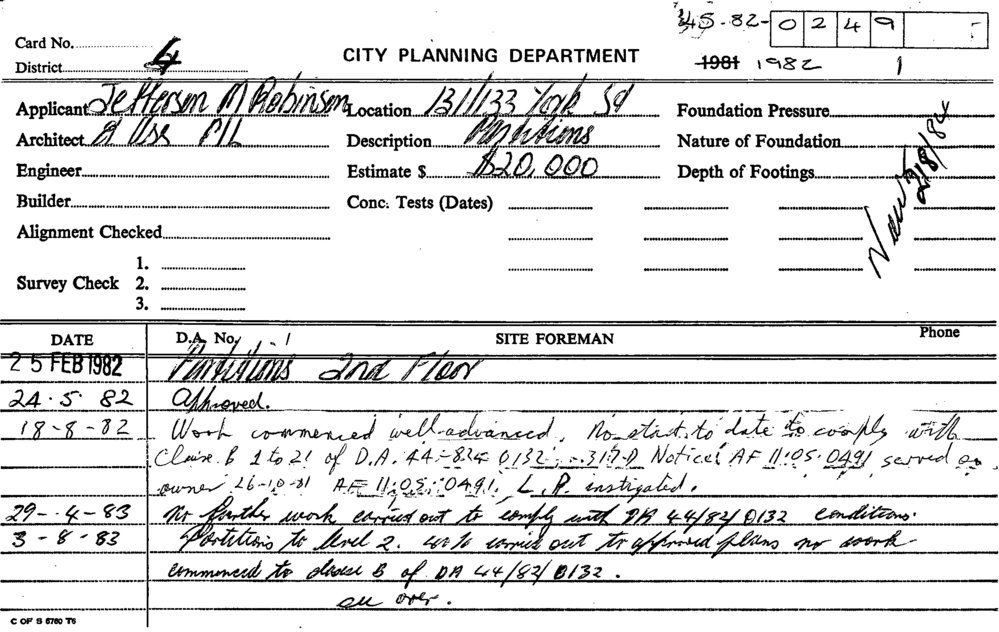 45-82-0249
Card No.
District 4
CITY PLANNING DEPARTMENT
1981 1982 1
Applicant Jefferson M Robinson Location 131/133 York St Foundation Pressure
Architect P/L Description Partitions Nature of Foundation
Engineer Estimate $ $20,000 Depth of Footings
Builder Conc. Tests (Dates)
Alignment Checked
2/8/84
Survey Check 1.
2.
3.
DATE D.A. No. SITE FOREMAN Phone
25 FEB 1982 Partitions 2nd Floor
24.5.82 Approved.
18-8-82 Work commenced well advanced. No start to date to comply with
Clause B 1 to 21 of D.A. 44-82 0132. 317D Notice AF 11:05:0491 served on
owner 26-10-81 AF 11:05:0491. L.P. instigated.
29-4-83 No further work carried out to comply with DA 44/82/0132 conditions.
3-8-83 Partitions to level 2. work carried out to approved plans no work
commenced to clause B of DA 44/82/0132.
see over.
C OF S 6760 T6